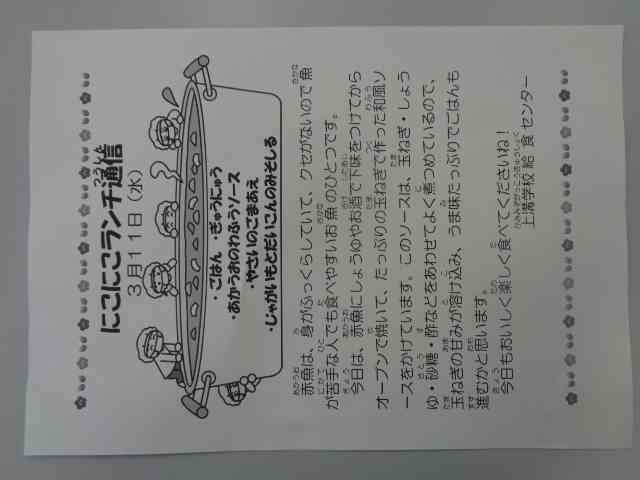 にこにこランチ通信
3月11日（水）
・ごはん ・ぎゅうにゅう
・あかうおのわふうソース
・やさいのごまあえ
・じゃがいもとだいこんのみそしる
赤魚は、身がふっくらしていて、クセがないので魚
が苦手な人でも食べやすいお魚のひとつです。
今日は、赤魚にしょうゆやお酒で下味をつけてから
オーブンで焼いて、たっぷりの玉ねぎで作った和風ソ
ースをかけています。このソースは、玉ねぎ・しょう
ゆ・砂糖・酢などをあわせてよく煮つめているので、
玉ねぎの甘みが溶け込み、うま味たっぷりでごはんも
進むかと思います。
今日もおいしく楽しく食べてくださいね！
上溝学校給食センター